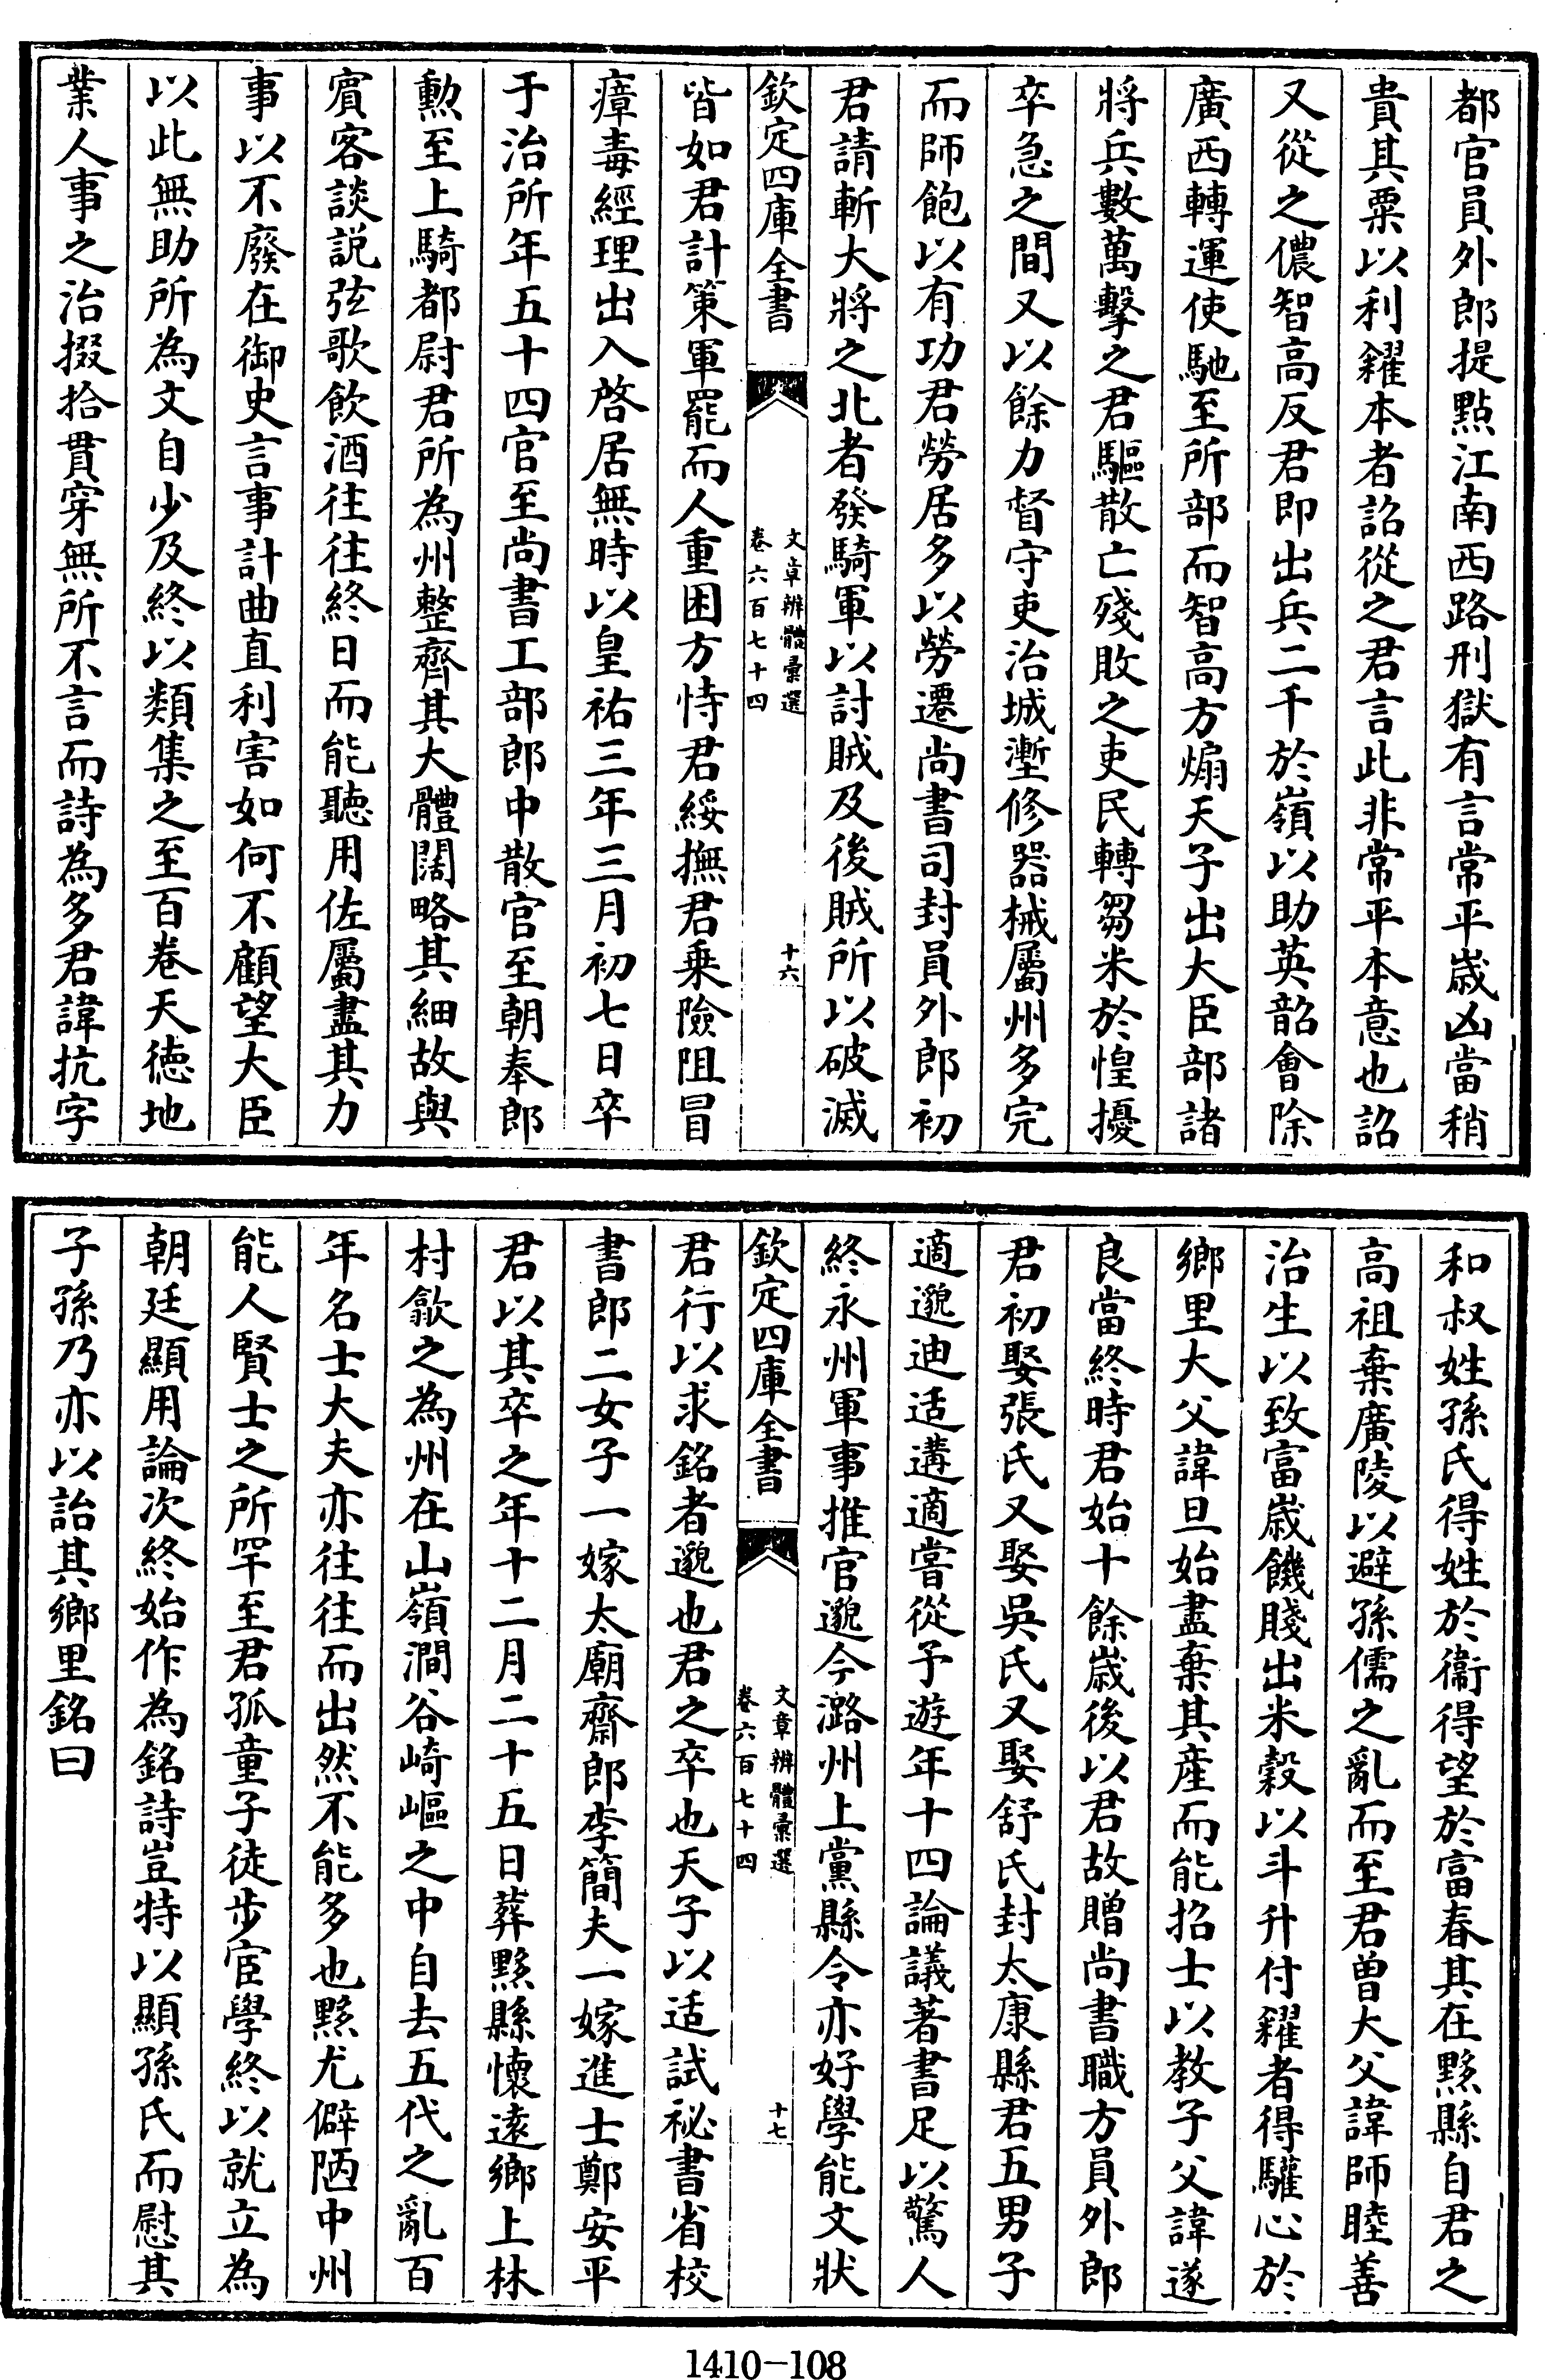 都官員外郎提點江南西路刑獄有言常平歲凶當稍
貴其粟以利糴本者詔從之君言此非常平本意也詔
又從之儂智高反君即出兵二千於嶺以助英韶會除
廣西轉運使馳至所部而智高方煽天子出大臣部諸
將兵數萬擊之君驅散亡殘敗之吏民轉芻米於惶擾
卒急之間又以餘力督守吏治城塹修器械屬州多完
而師飽以有功君勞居多以勞遷尚書司封員外郎初
君請斬大將之北者發騎軍以討賊及後賊所以破滅
欽定四庫全書
文章辨體彙選
卷六百七十四
十六
皆如君計策軍罷而人重困方恃君綏撫君乗險阻冒
瘴毒經理出入啓居無時以皇祐三年三月初七日卒
于治所年五十四官至尚書工部郎中散官至朝奉郎
勲至上騎都尉君所為州整齊其大體闊略其細故與
賓客談説弦歌飲酒往往終日而能聽用佐屬盡其力
事以不廢在御史言事計曲直利害如何不顧望大臣
以此無助所為文自少及終以類集之至百卷天德地
業人事之治掇拾貫穿無所不言而詩為多君諱抗字
和叔姓孫氏得姓於衞得望於富春其在黟縣自君之
高祖棄廣陵以避孫儒之亂而至君曾大父諱師睦善
治生以致富歲饑賤出米穀以斗升付糴者得驩心於
鄉里大父諱旦始盡棄其産而能招士以教子父諱遂
良當終時君始十餘歲後以君故贈尚書職方員外郎
君初娶張氏又娶吳氏又娶舒氏封太康縣君五男子
適邈迪适遘適嘗從予遊年十四論議著書足以驚人
終永州軍事推官邈今潞州上黨縣令亦好學能文狀
欽定四庫全書
文章辨體彙選
卷六百七十四
十七
君行以求銘者邈也君之卒也天子以适試祕書省校
書郎二女子一嫁太廟齋郎李簡夫一嫁進士鄭安平
君以其卒之年十二月二十五日葬黟縣懷遠鄉上林
村歙之為州在山嶺澗谷崎嶇之中自去五代之亂百
年名士大夫亦往往而出然不能多也黟尤僻陋中州
能人賢士之所罕至君孤童子徒步宦學終以就立為
朝廷顯用論次終始作為銘詩豈特以顯孫氏而慰其
子孫乃亦以詒其鄉里銘曰
1410-108